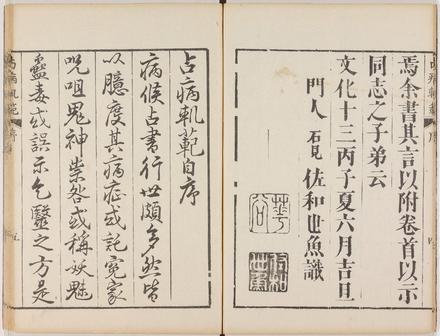 焉余書其言以附卷首以示
同志之子弟云
文化十三丙子夏六月吉旦
門人 石見 佐和也魚識
占病軌範自序
病候占書行世頗多然皆
以臆度其病症或託冤家
呪咀鬼神祟咎或稱妖魅
蠱毒或誤示乞醫之方是